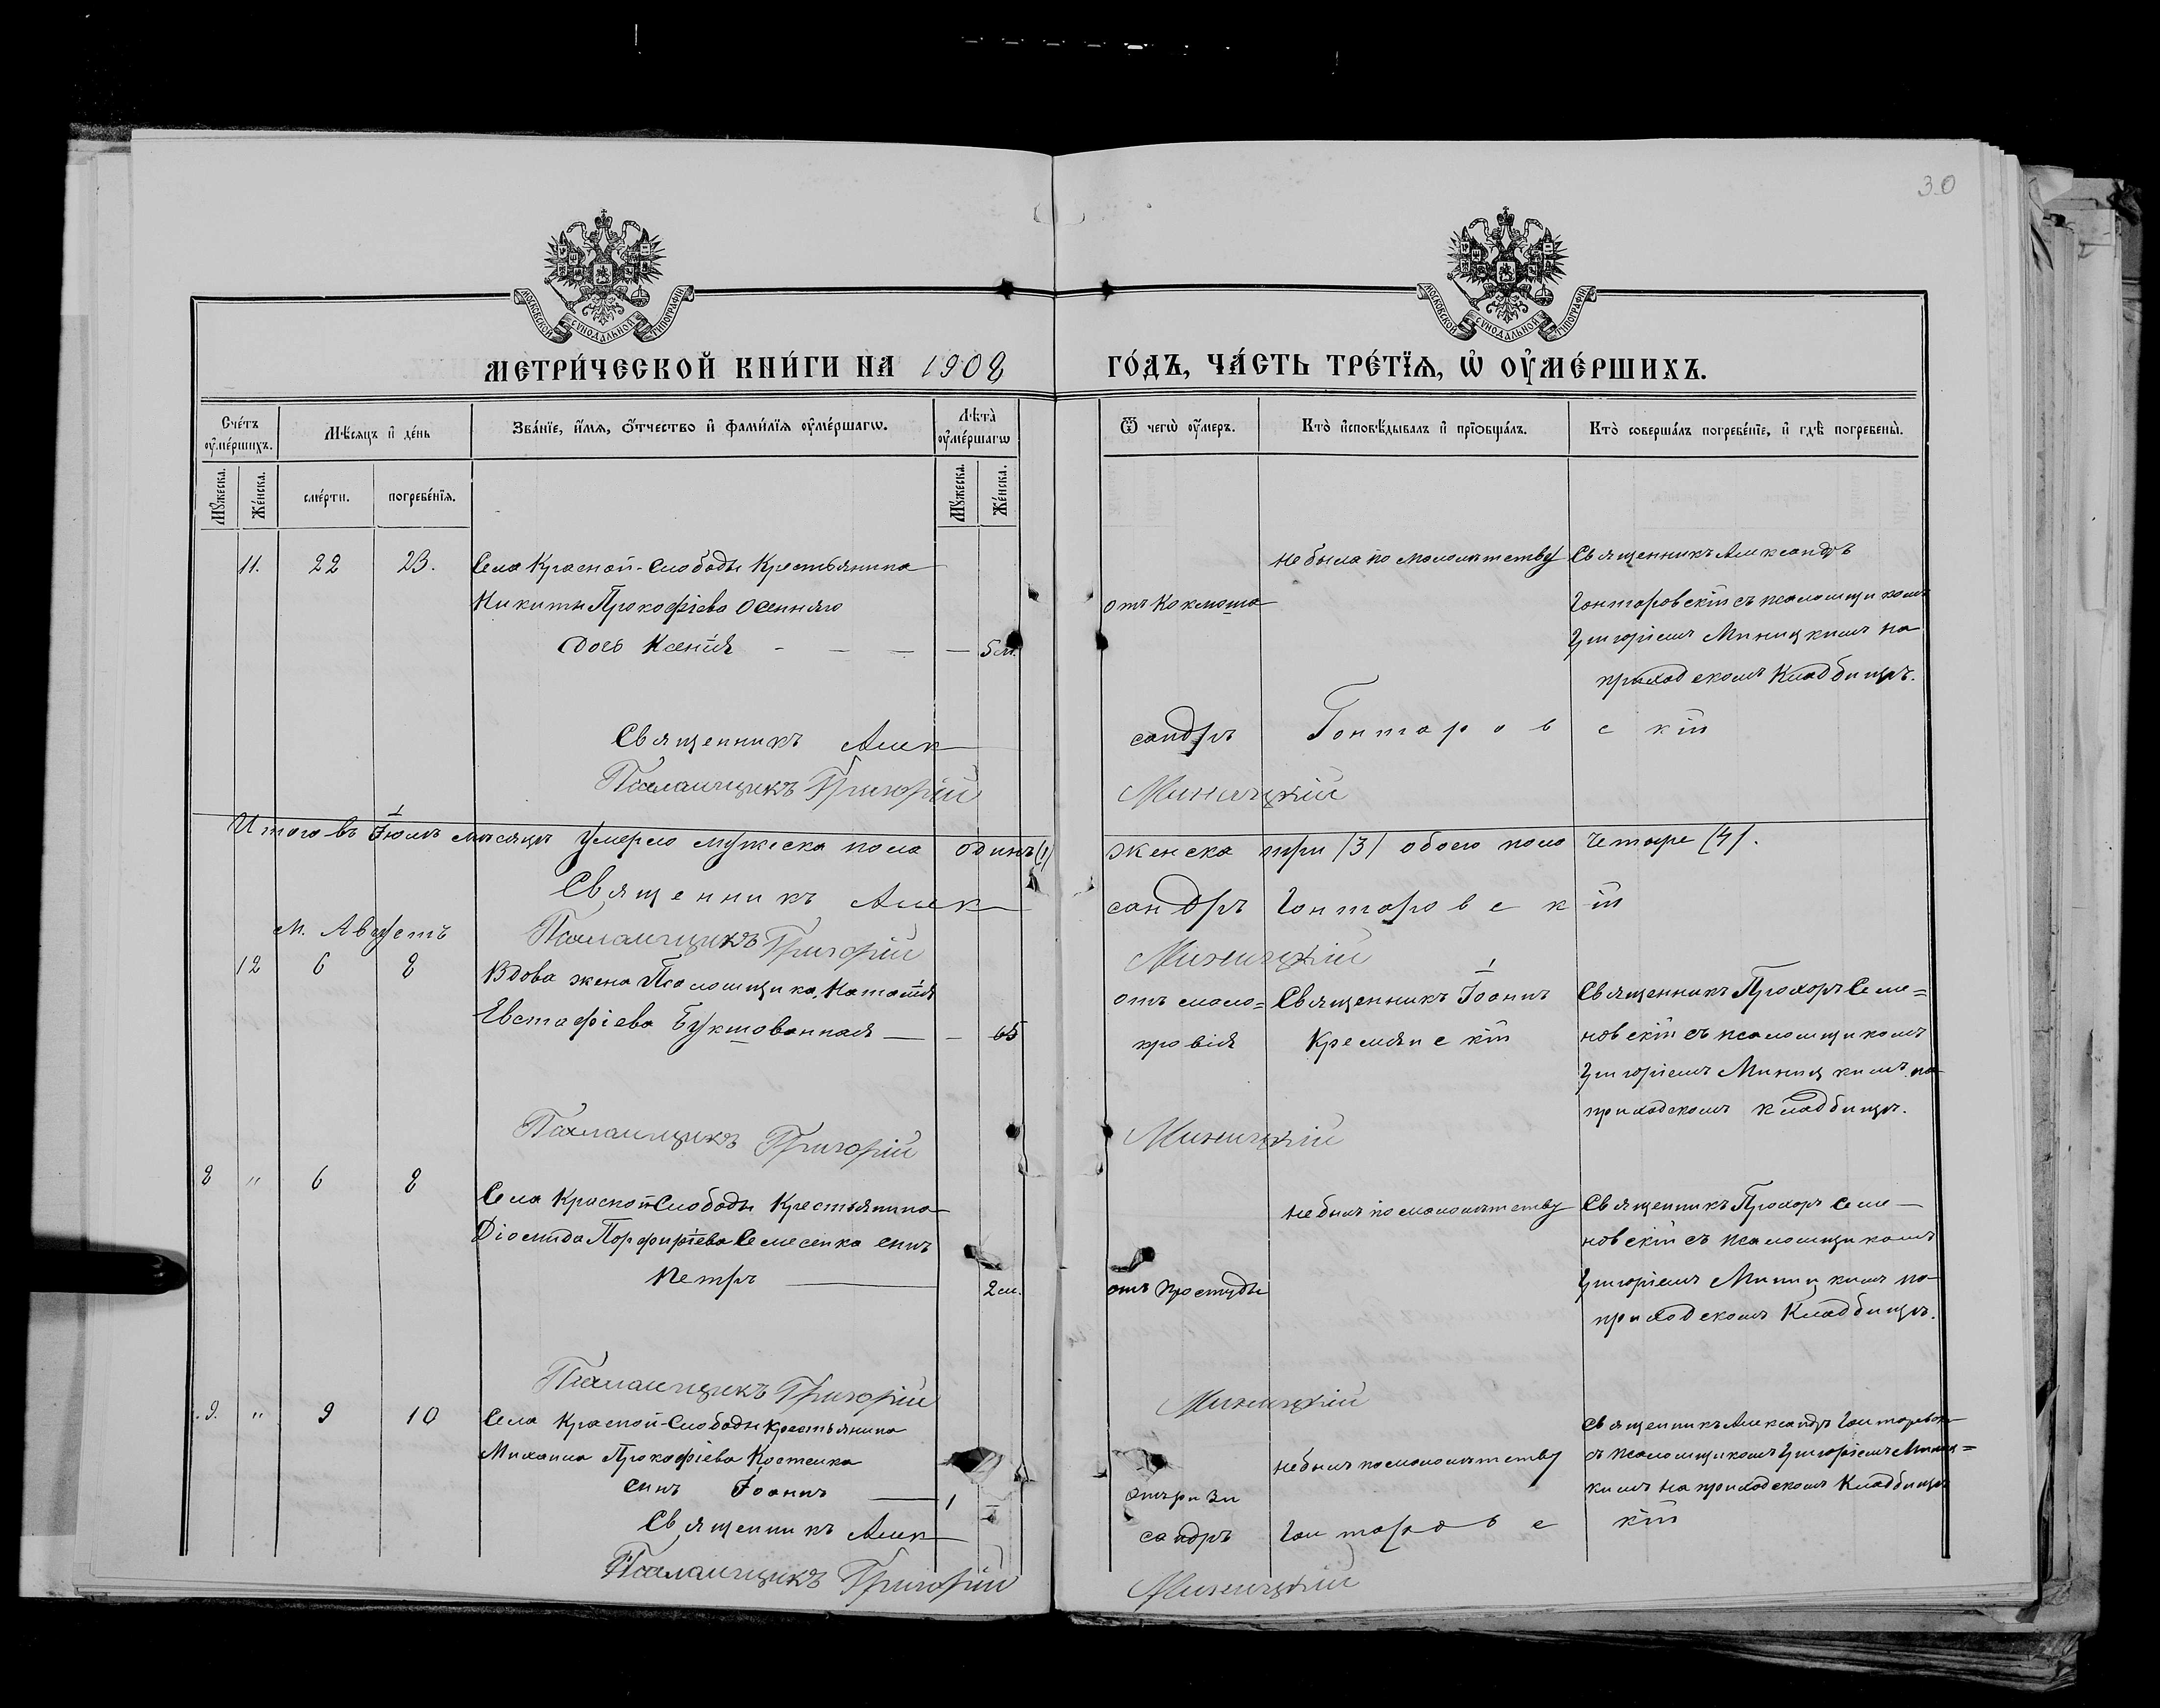 30
МОСКОВСКОЙ СѴНОДАЛЬНОЙ ТИПОГРАФІИ
МОСКОВСКОЙ СѴНОДАЛЬНОЙ ТИПОГРАФІИ
МЕТРИ́ЧЕСКОЙ КНИ́ГИ НА 1908
ГО́ДЪ, ЧА́СТЬ ТРЕ́ТЇѦ, Ѡ҆ ОУ҆МЕ́РШИХЪ.
Сче́тъ оу҆ме́ршихъ.
Мѣ́сяцъ и҆ де́нь
Зва́нїе, и҆́мѧ, ѻ҆́тчество и҆ фами́лїѧ оу҆ме́ршагѡ.
Лѣ́та̀ оу҆ме́ршагѡ
Ѿ чегѡ̀ оу҆́меръ.
Кто̀ и҆сповѣ́дывалъ и҆ прїѡбща́лъ.
Кто̀ соверша́лъ погребе́нїе, и҆ гдѣ̀ погребены̀.
Мꙋ́жеска.
Же́нска.
сме́рти.
погребе́нїѧ.
Мꙋ́жеска.
Же́нска.
11. 22 23. Села Красной-Слободы Крестьянина
Никиты Прокофіева Осенняго
дочь Ксенія - — — — 5 м.
отъ Коклюша
не была по малолѣтству
Священникъ Александръ
Гонторовскій съ псаломщикомъ
Григоріемъ Миницкимъ на
приходскомъ Кладбищѣ.
Священникъ Алек
сандръ Гонторовскій
Псаломщикъ Григорій
Миницкій
Итого въ Іюлѣ мѣсяцѣ умерло мужеска пола одинъ (1)
женска три /3/ обоего пола четыре (4).
Священникъ Алек
сандръ Гонторовскій
М. Августъ
Псаломщикъ Григорій
Миницкій
12 6 8 Вдова жена Псаломщика, Наталія
Евстафіева Букшованная — — 65
отъ мало=
кровія
Священникъ Іоаннъ
Кремянскій
Священникъ Прохоръ Семе=
новскій съ псаломщикомъ
Григоріемъ Миницкимъ на
приходскомъ кладбищѣ.
Псаломщикъ Григорій
Миницкій
8 " 6 8 Села Красной Слободы Крестьянина
Діомида Порфиріева Семесенка сынъ
Петръ — 2 м.
отъ простуды
не былъ по малолѣтству
Священникъ Прохоръ Семе—
новскій съ псаломщикомъ
Григоріемъ Миницкимъ на
приходскомъ Кладбищѣ.
Псаломщикъ Григорій
Миницкій
9. " 9 10 Села Красной-Слободы Крестьянина
Михаила Прокофіева Костенка
сынъ Іоаннъ — 1 —
не былъ по малолѣтству
Священникъ Александръ
съ псаломщикомъ Григоріемъ Миниц=
кимъ на приходскомъ Кладбищѣ
Священникъ Алек
сандръ Гонторовскій
Псаломщикъ Григорій
Миницкій